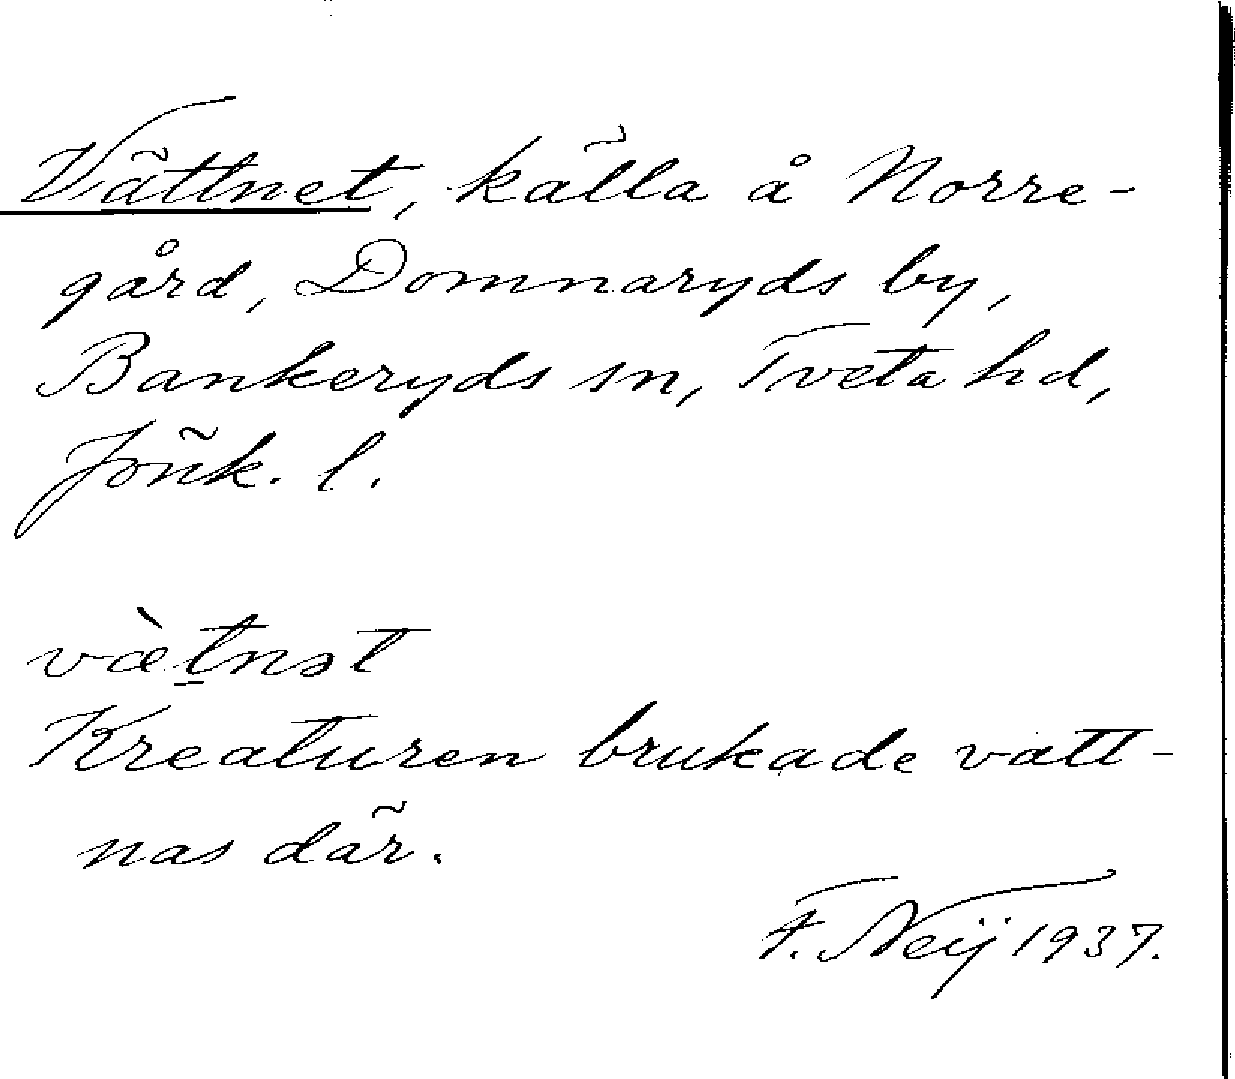 Vättnet, källa å Norre-
gård, Domnaryds by,
Bankeryds sn, Tveta hd,
Jönk. l.
vætnət
Kreaturen brukade vatt-
nas där.
F. Neij 1937.